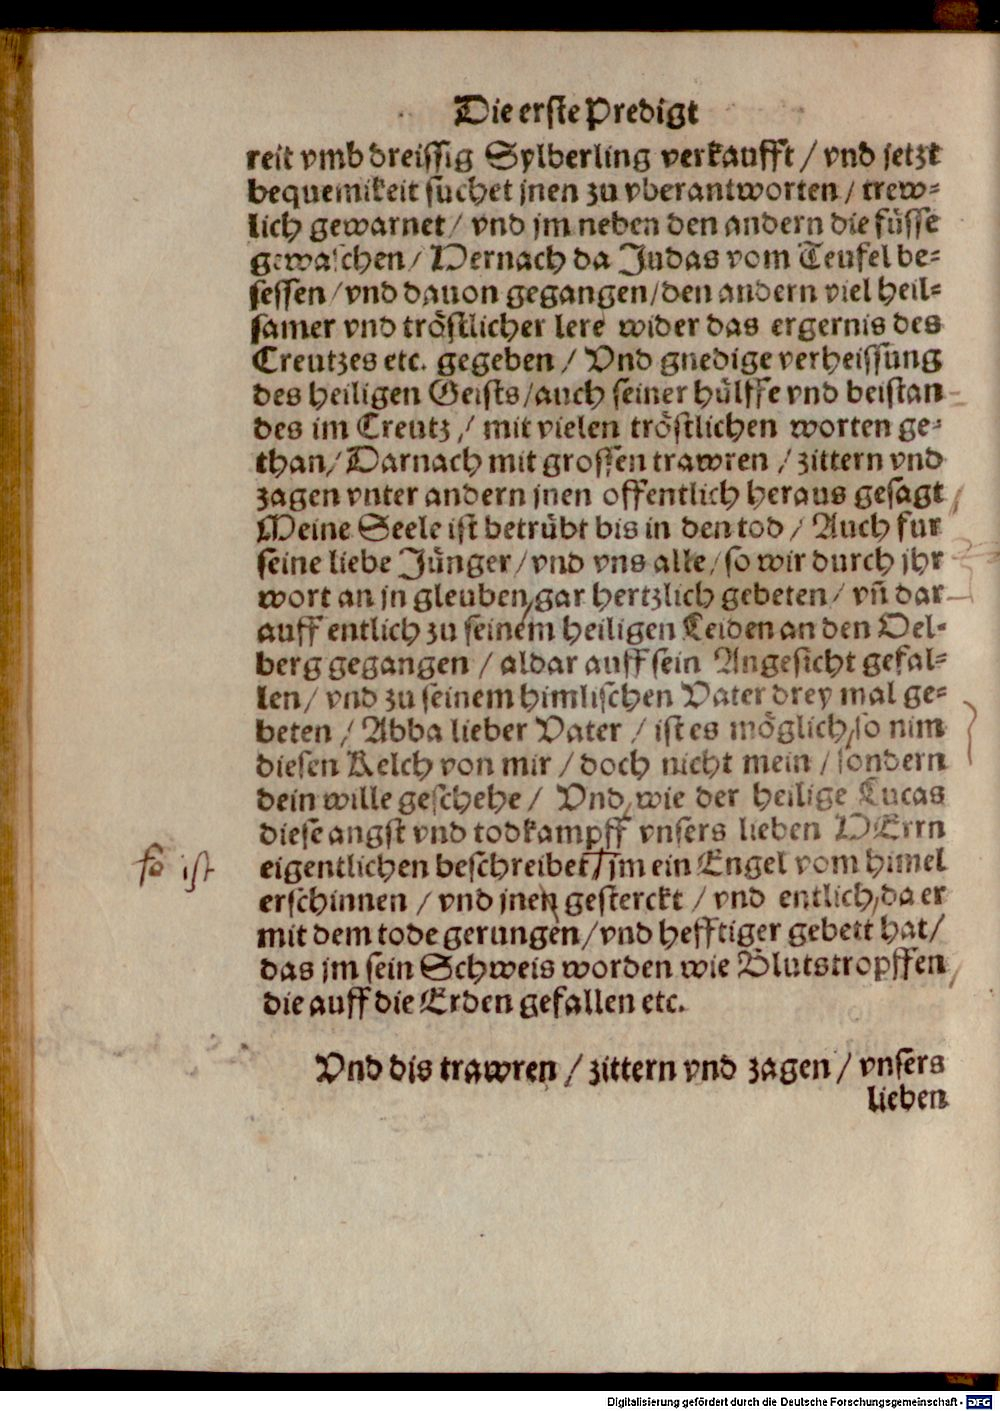 Die erste Predigt
reit vmb dreissig Sylberling verkaufft / vnd jetzt
bequemikeit suchet jnen zu vberantworten / trew=
lich gewarnet / vnd jm neben den andern die füsse
gewaschen / Hernach da Judas vom Teufel be=
sessen / vnd dauon gegangen / den andern viel heil=
samer vnd tröstlicher lere wider das ergernis des
Creutzes etc. gegeben / Vnd gnedige verheissung
des heiligen Geists / auch seiner hülffe vnd beistan
des im Creutz / mit vielen tröstlichen worten ge=
than / Darnach mit grossen trawren / zittern vnd
zagen vnter andern jnen offentlich heraus gesagt /
Meine Seele ist betrübt bis in den tod / Auch fur
seine liebe Jünger / vnd vns alle / so wir durch jhr
wort an jn gleuben, gar hertzlich gebeten / vñ dar
auff entlich zu seinem heiligen Leiden an den Oel=
berg gegangen / aldar auff sein Angesicht gefal=
len / vnd zu seinem himlischen Vater drey mal ge=
beten / Abba lieber Vater / ist es möglich, so nim
diesen Kelch von mir / doch nicht mein / sondern
dein wille geschehe / Vnd, wie der heilige Lucas
diese angst vnd todkampff vnsers lieben HErrn
so ist eigentlichen beschreibet / jm ein Engel vom himel
erschinnen / vnd jnen gesterckt / vnd entlich, da er
mit dem tode gerungen / vnd hefftiger gebett hat /
das jm sein Schweis worden wie Blutstropffen /
die auff die Erden gefallen etc.
Vnd dis trawren / zittern vnd zagen / vnsers
lieben
Digitalisierung gefördert durch die Deutsche Forschungsgemeinschaft - DFG